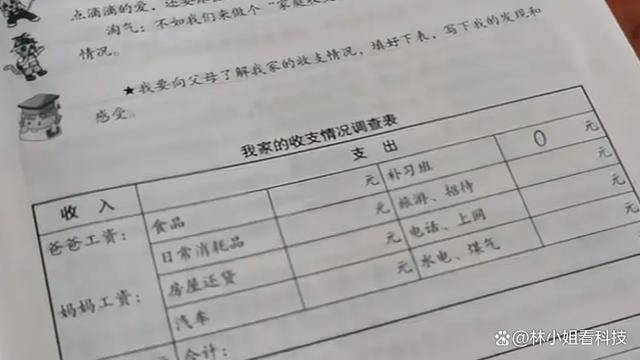 点滴滴的爱，还要
淘气：不如我们来做个“家庭收支
情况。
★我要向父母了解我家的收支情况，填好下表，写下我的发现和
感受。
我家的收支情况调查表
收 入 支 出
爸爸工资： 食品 元 补习班 0 元
日常消耗品 元 旅游、招待 元
妈妈工资： 房屋还贷 元 电话、上网 元
汽车 元 水电、煤气 元
合计： 元
@林小姐看科技